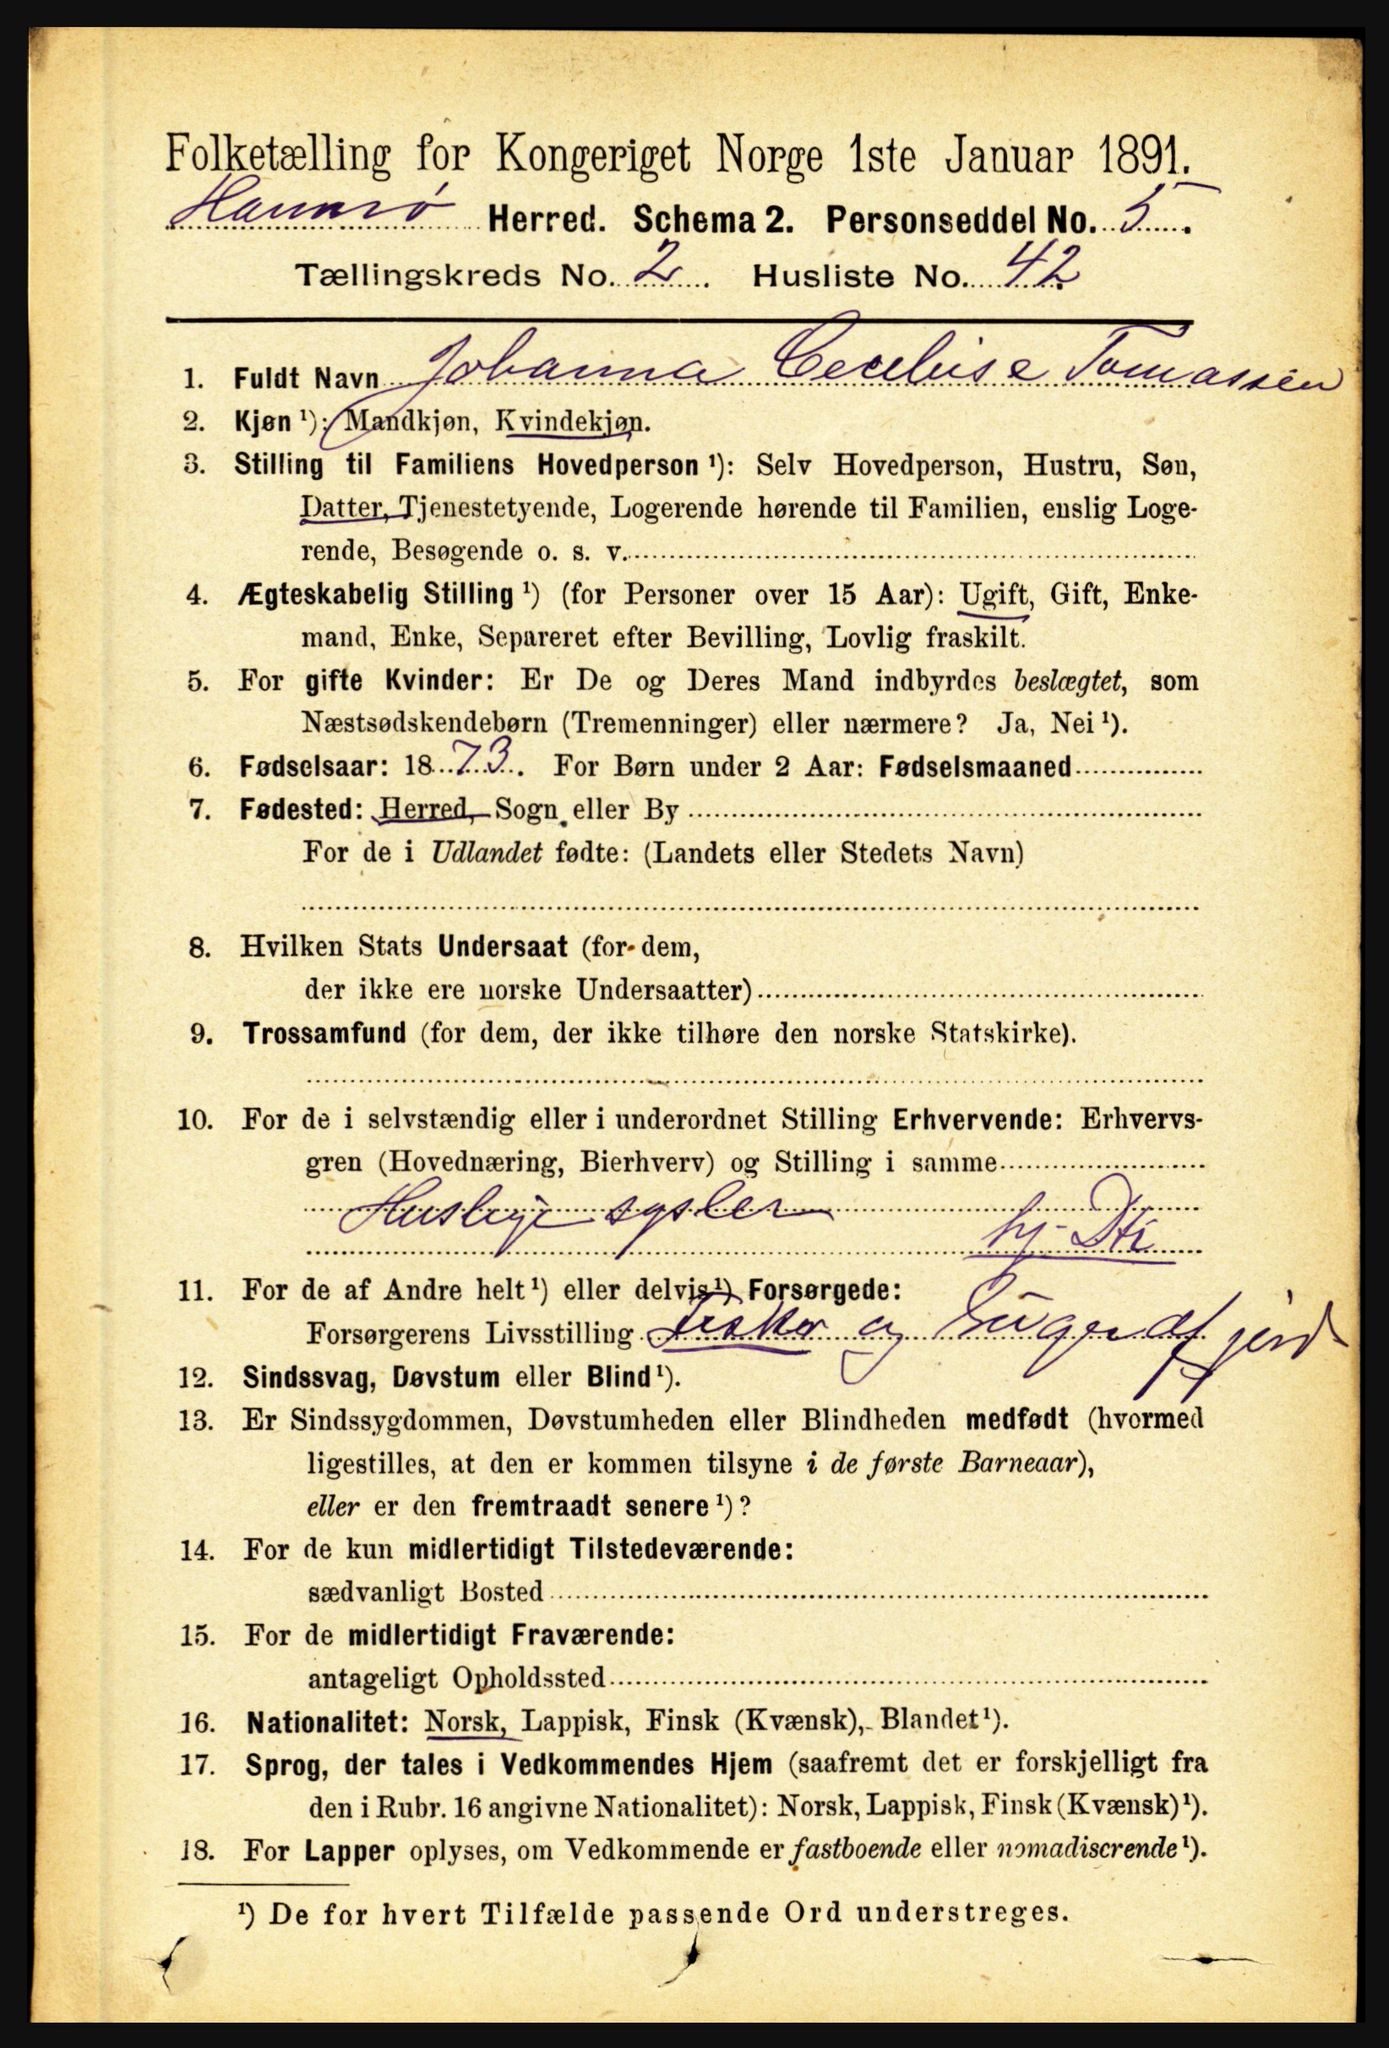 Folketælling for Kongeriget Norge 1ste Januar 1891.
Hammerø Herred. Schema 2. Personseddel No. 5.
Tællingskreds No. 2. Husliste No. 42
1. Fuldt Navn Johanna Tomassen
2. Kjøn ¹): Mandkjøn, Kvindekjøn.
3. Stilling til Familiens Hovedperson ¹): Selv Hovedperson, Hustru, Søn,
Datter, Tjenestetyende, Logerende hørende til Familien, enslig Loge-
rende, Besøgende o. s. v.
4. Ægteskabelig Stilling ¹) (for Personer over 15 Aar): Ugift, Gift, Enke-
mand, Enke, Separeret efter Bevilling, Lovlig fraskilt.
5. For gifte Kvinder: Er De og Deres Mand indbyrdes beslægtet, som
Næstsødskendebørn (Tremenninger) eller nærmere? Ja, Nei ¹).
6. Fødselsaar: 1873. For Børn under 2 Aar: Fødselsmaaned
7. Fødested: Herred, Sogn eller By
For de i Udlandet fødte: (Landets eller Stedets Navn)
8. Hvilken Stats Undersaat (for dem,
der ikke ere norske Undersaatter)
9. Trossamfund (for dem, der ikke tilhøre den norske Statskirke).
10. For de i selvstændig eller i underordnet Stilling Erhvervende: Erhvervs-
gren (Hovednæring, Bierhverv) og Stilling i samme
Huslige sysler
hj. Dtr
11. For de af Andre helt ¹) eller delvis ¹) Forsørgede:
Forsørgerens Livsstilling Fisker og Eiger af jord
12. Sindssvag, Døvstum eller Blind ¹).
13. Er Sindssygdommen, Døvstumheden eller Blindheden medfødt (hvormed
ligestilles, at den er kommen tilsyne i de første Barneaar),
eller er den fremtraadt senere ¹)?
14. For de kun midlertidigt Tilstedeværende:
sædvanligt Bosted
15. For de midlertidigt Fraværende:
antageligt Opholdssted
16. Nationalitet: Norsk, Lappisk, Finsk (Kvænsk), Blandet ¹).
17. Sprog, der tales i Vedkommendes Hjem (saafremt det er forskjelligt fra
den i Rubr. 16 angivne Nationalitet): Norsk, Lappisk, Finsk (Kvænsk) ¹).
18. For Lapper oplyses, om Vedkommende er fastboende eller nomadiserende ¹).
¹) De for hvert Tilfælde passende Ord understreges.